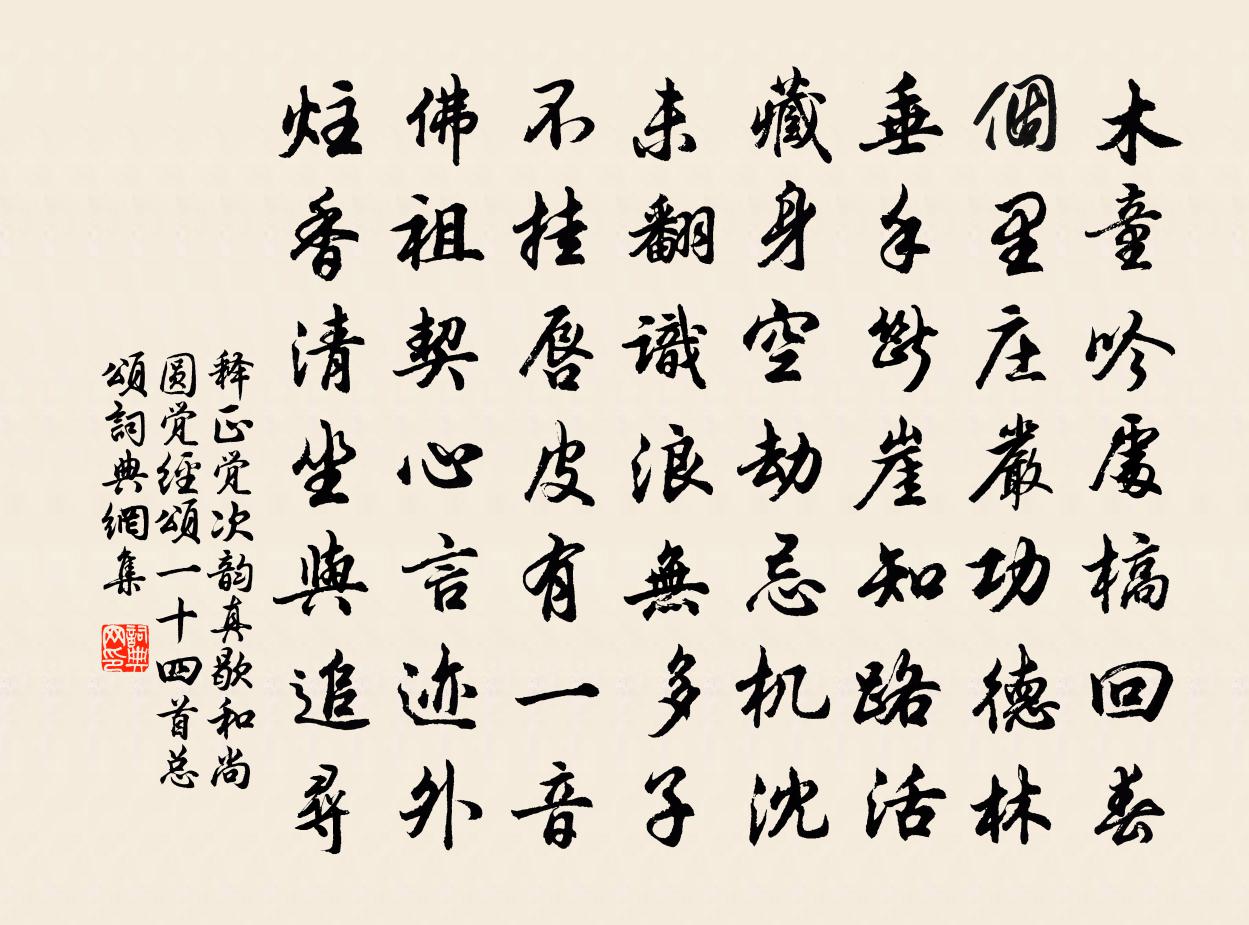 木童吟處槁回春
個里庄嚴功德林
垂手斷崖知路活
藏身空劫忌机沈
未翻識浪無多子
不挂唇皮有一音
佛祖契心言迹外
炷香清坐與追尋
释正觉次韵真歇和尚
圆觉經頌一十四首总
頌詞典網集
詞典网印